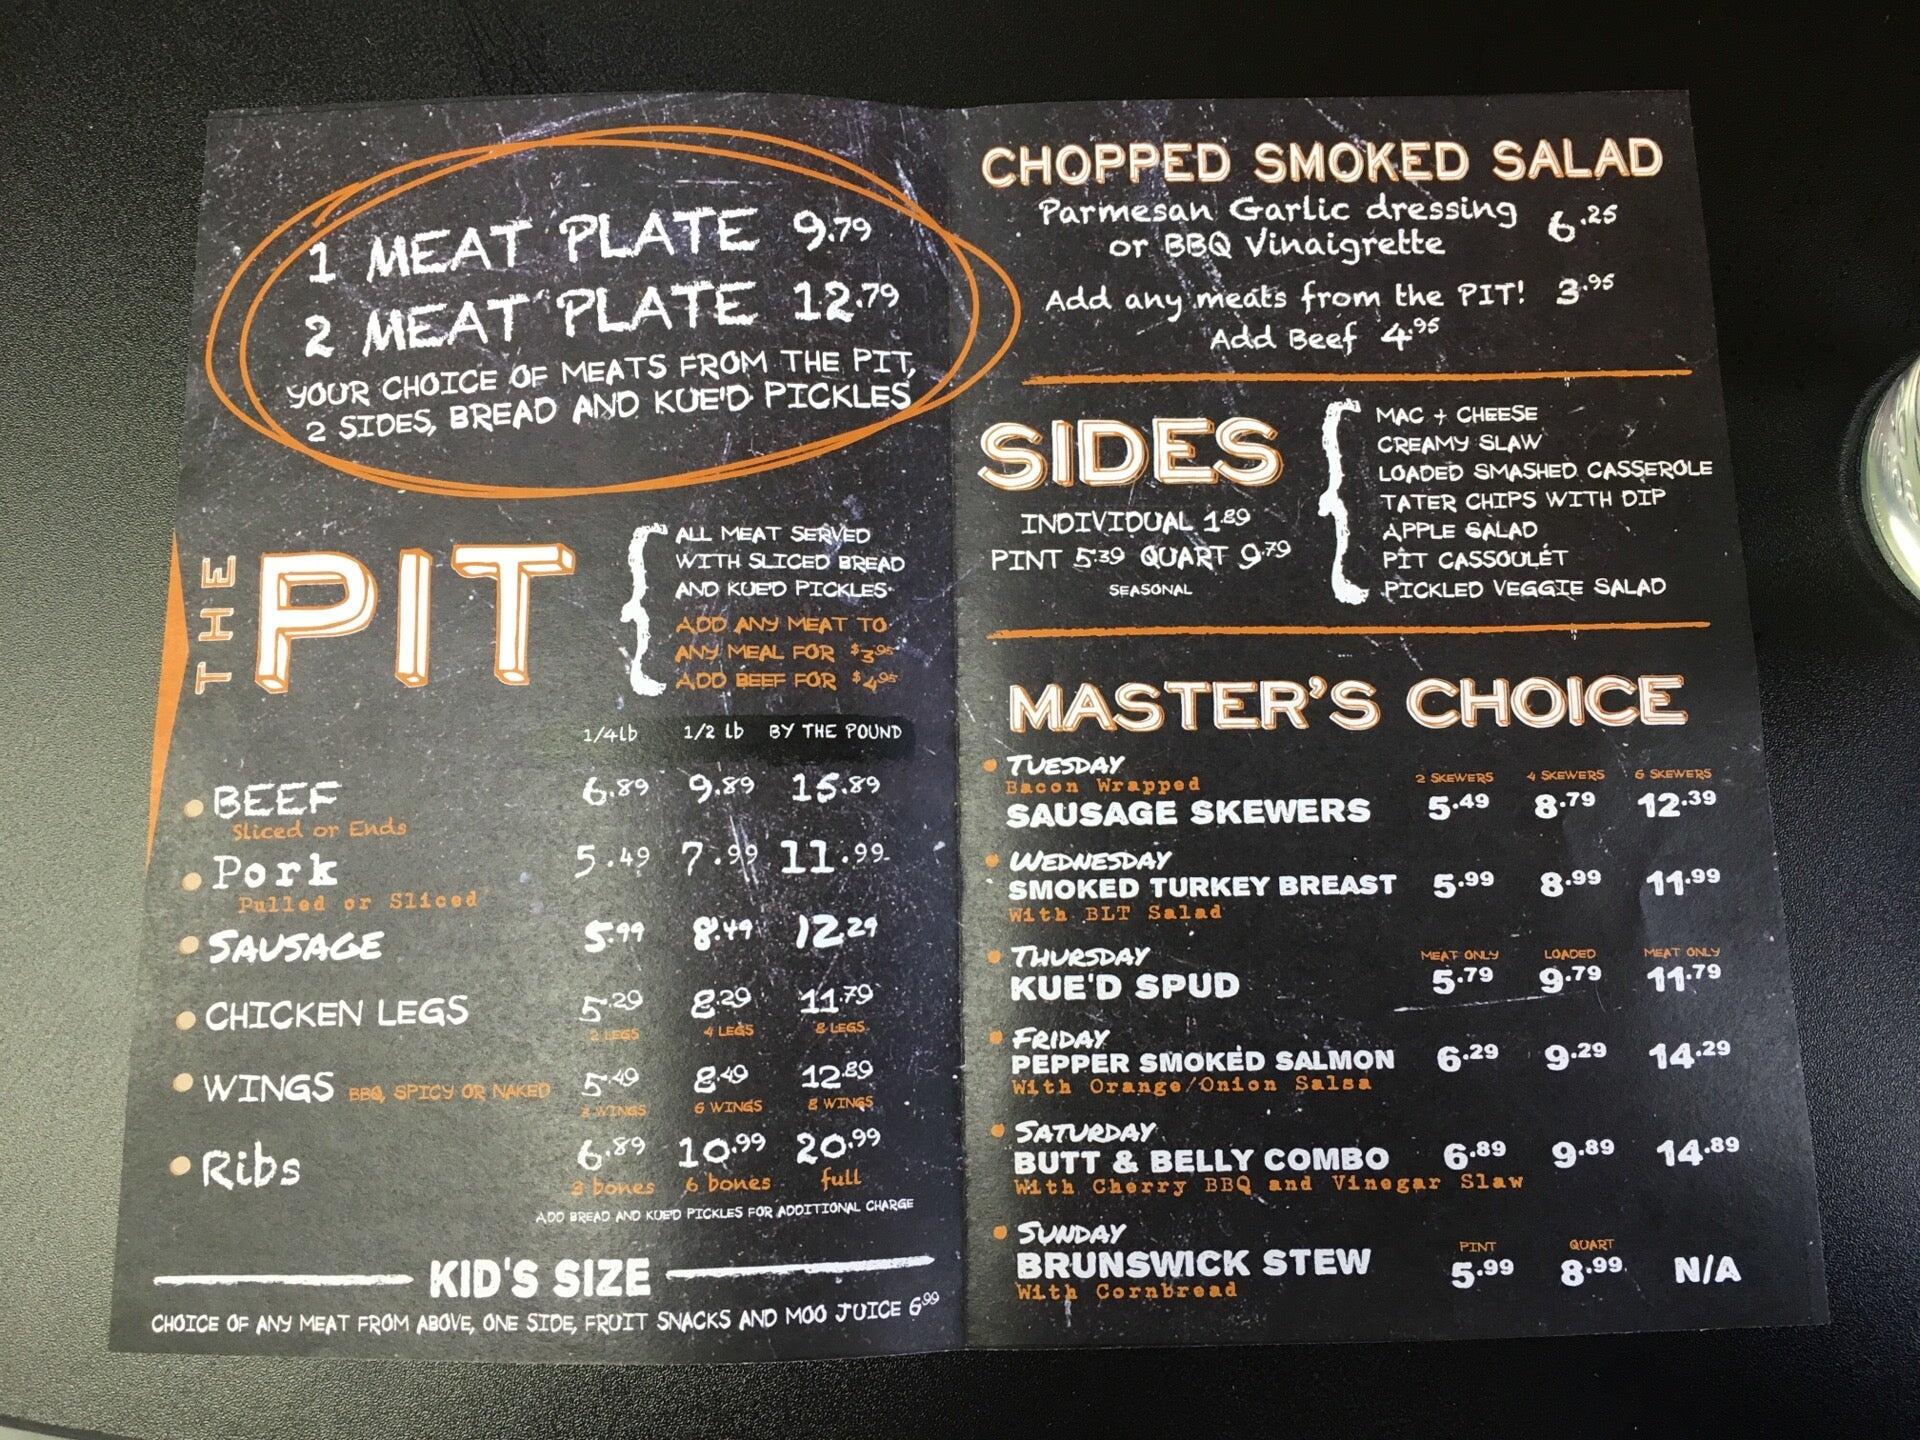 1 MEAT PLATE 9.79
2 MEAT PLATE 12.79
YOUR CHOICE OF MEATS FROM THE PIT,
2 SIDES, BREAD AND KUE'D PICKLES
THE PIT
ALL MEAT SERVED
WITH SLICED BREAD
AND KUE'D PICKLES
ADD ANY MEAT TO
ANY MEAL FOR $3.95
ADD BEEF FOR $4.95
1/4lb 1/2 lb BY THE POUND
BEEF 6.89 9.89 15.89
Sliced or Ends
Pork 5.49 7.99 11.99
Pulled or Sliced
SAUSAGE 5.99 8.49 12.29
CHICKEN LEGS 5.29 8.29 11.79
2 LEGS 4 LEGS 8 LEGS
WINGS BBQ, SPICY OR NAKED 5.49 8.49 12.89
3 WINGS 6 WINGS 8 WINGS
Ribs 6.89 10.99 20.99
3 bones 6 bones full
ADD BREAD AND KUE'D PICKLES FOR ADDITIONAL CHARGE
KID'S SIZE
CHOICE OF ANY MEAT FROM ABOVE, ONE SIDE, FRUIT SNACKS AND MOO JUICE 6.99
CHOPPED SMOKED SALAD
Parmesan Garlic dressing 6.25
or BBQ Vinaigrette
Add any meats from the PIT! 3.95
Add Beef 4.95
SIDES
INDIVIDUAL 1.89
PINT 5.39 QUART 9.79
SEASONAL
MAC + CHEESE
CREAMY SLAW
LOADED SMASHED CASSEROLE
TATER CHIPS WITH DIP
APPLE SALAD
PIT CASSOULET
PICKLED VEGGIE SALAD
MASTER'S CHOICE
TUESDAY
Bacon Wrapped 2 SKEWERS 4 SKEWERS 6 SKEWERS
SAUSAGE SKEWERS 5.49 8.79 12.39
WEDNESDAY
SMOKED TURKEY BREAST 5.99 8.99 11.99
With BLT Salad
THURSDAY MEAT ONLY LOADED MEAT ONLY
KUE'D SPUD 5.79 9.79 11.79
FRIDAY
PEPPER SMOKED SALMON 6.29 9.29 14.29
With Orange/Onion Salsa
SATURDAY
BUTT & BELLY COMBO 6.89 9.89 14.89
With Cherry BBQ and Vinegar Slaw
SUNDAY PINT QUART
BRUNSWICK STEW 5.99 8.99 N/A
With Cornbread